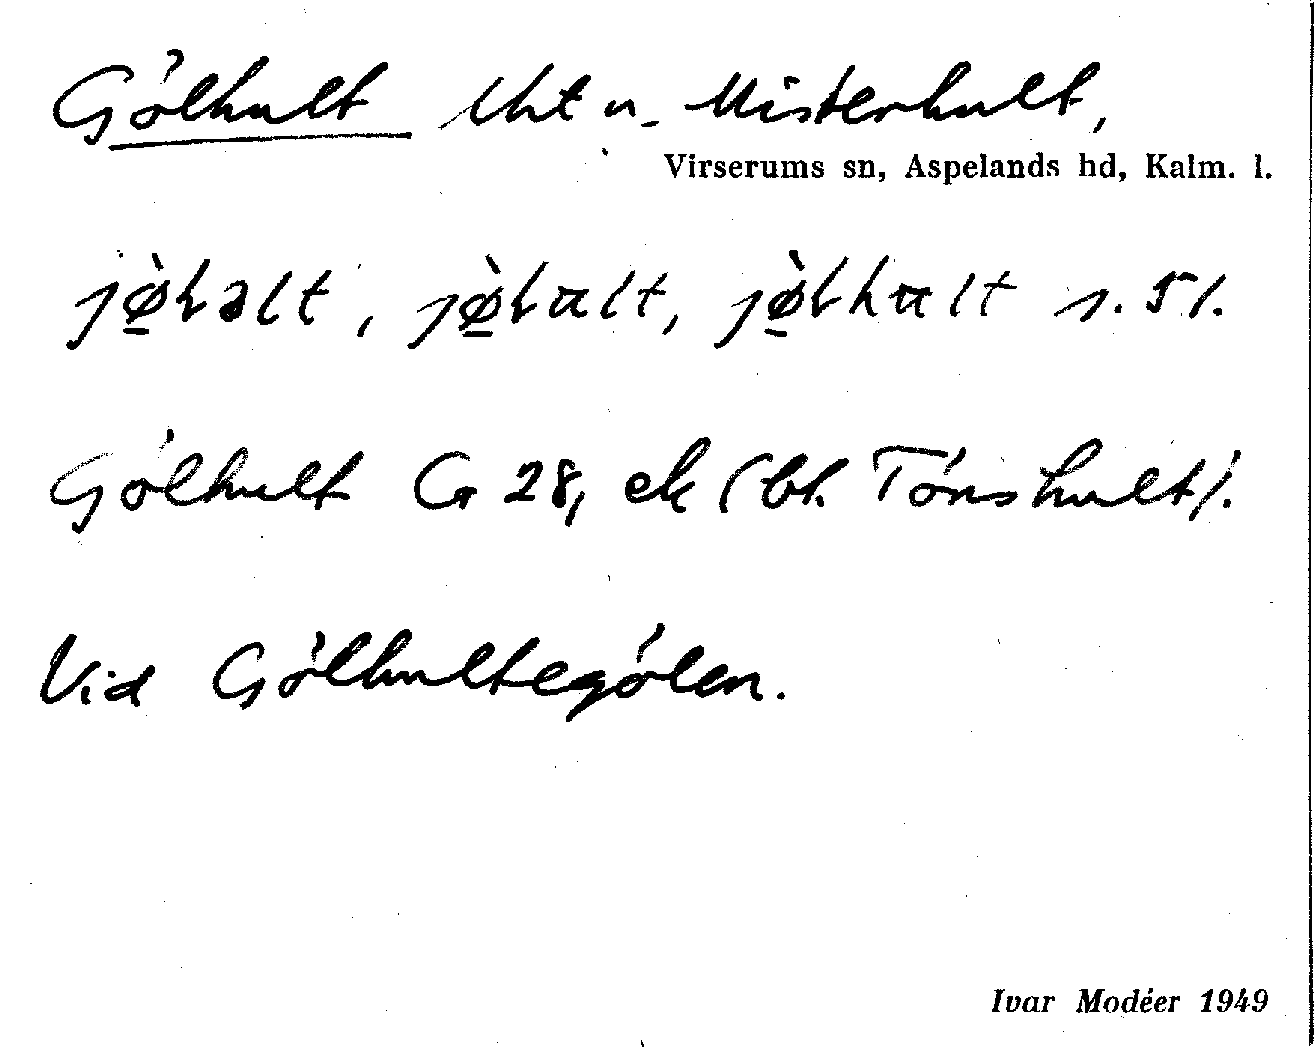 Gölhult Uht u. Misterhult,
Virserums sn, Aspelands hd, Kalm. l.
jø̀ləlt, jø̀lult, jø̀lhult s. 51.
Gölhult G 28, ek (bl. Tönshult).
Vid Gölhultegölen.
Ivar Modéer 1949